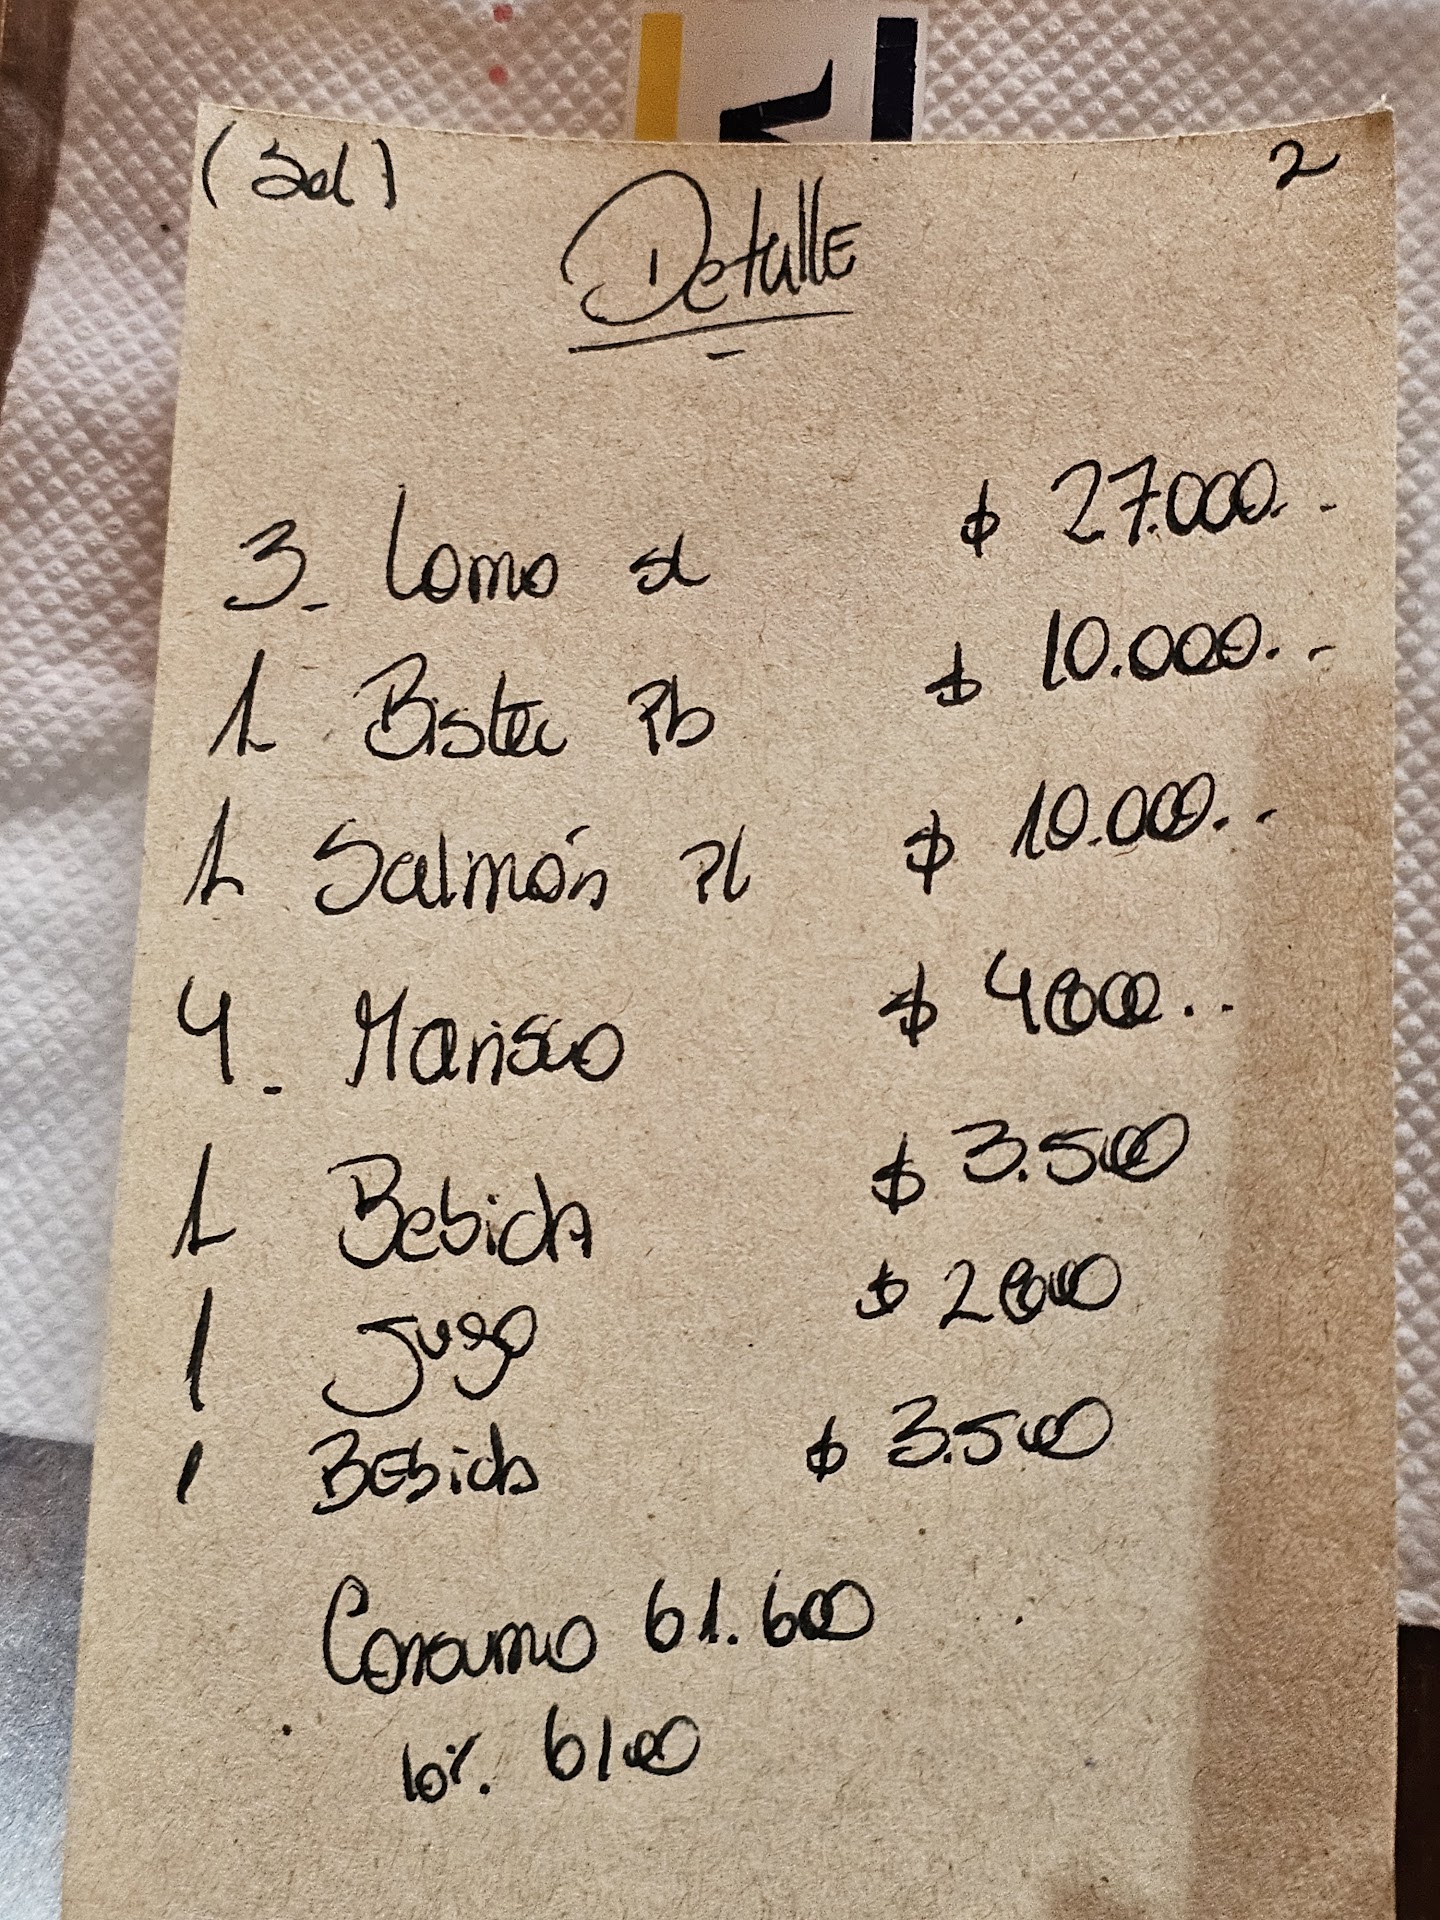 2
DetallE
3. Lomo sl $ 27.000..
1 Bistec Pb $ 10.000..
1 Salmón Pl $ 10.000..
4. Marisco $ 4800..
1 Bebida $ 3.500
1 Jugo $ 2800
1 BEbida $ 3.500
Consumo 61.600
10%. 6100